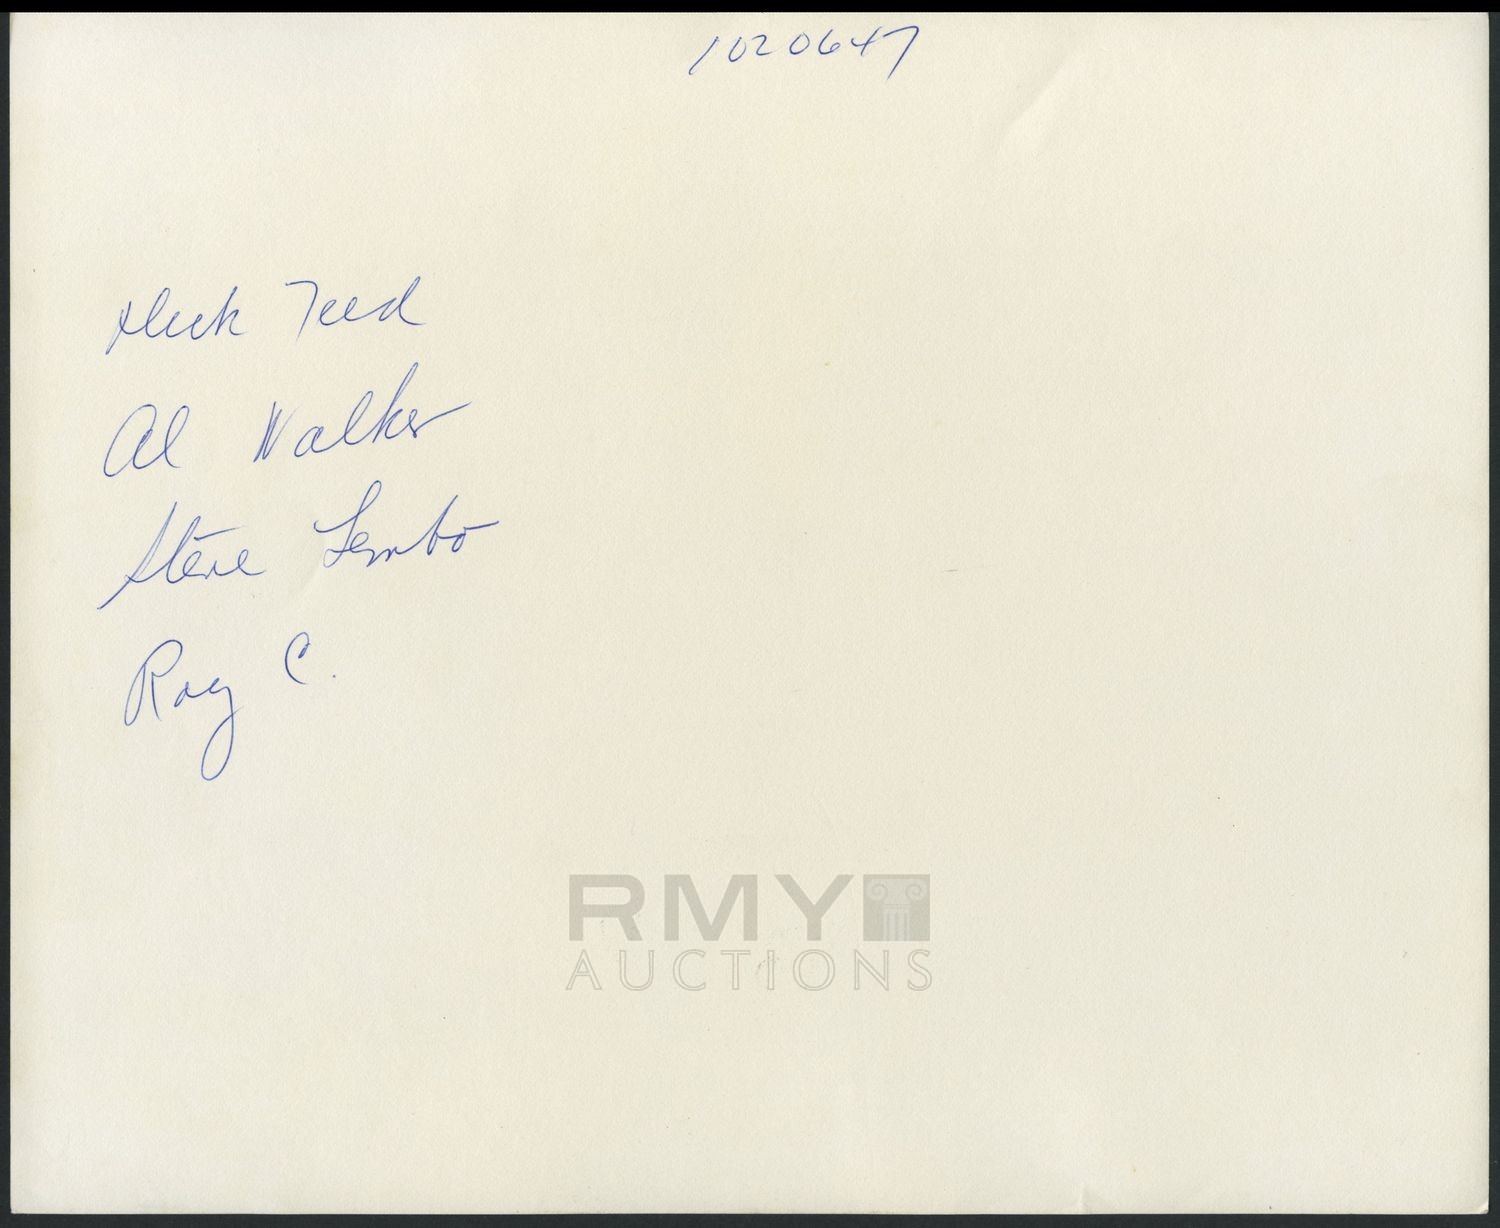 1020647
Dick Teed
Al Walker
Steve Lembo
Roy C.
RMY
AUCTIONS